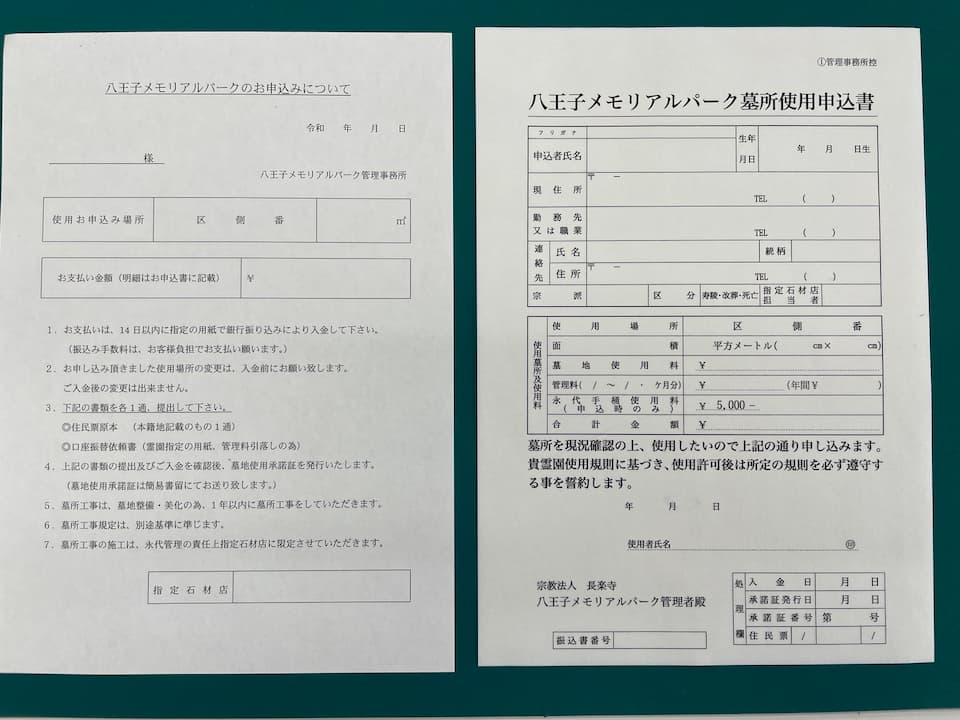 八王子メモリアルパークのお申込みについて
令和　年　月　日
様
八王子メモリアルパーク管理事務所
使用お申込み場所　区　側　番　㎡
お支払い金額（明細はお申込書に記載）　￥
1．お支払いは、14日以内に指定の用紙で銀行振り込みにより入金して下さい。
（振込み手数料は、お客様負担でお支払い願います。）
2．お申し込み頂きました使用場所の変更は、入金前にお願い致します。
ご入金後の変更は出来ません。
3．下記の書類を各1通、提出して下さい。
◎住民票原本　（本籍地記載のもの1通）
◎口座振替依頼書（霊園指定の用紙、管理料引落しの為）
4．上記の書類の提出及びご入金を確認後、墓地使用承諾証を発行いたします。
（墓地使用承諾証は簡易書留にてお送り致します。）
5．墓所工事は、墓地整備・美化の為、1年以内に墓所工事をしていただきます。
6．墓所工事規定は、別途基準に準じます。
7．墓所工事の施工は、永代管理の責任上指定石材店に限定させていただきます。
指定石材店
①管理事務所控
八王子メモリアルパーク墓所使用申込書
フリガナ
申込者氏名　生年月日　年　月　日生
現住所　〒　－
TEL　（　）
勤務先又は職業
TEL　（　）
連絡先　氏名　続柄
住所　〒　－
TEL　（　）
宗派　区分　寿陵・改葬・死亡　指定石材店担当者
使用墓所及使用料
使用場所　区　側　番
面積　平方メートル（　cm×　cm）
墓地使用料　￥
管理料（　/　～　/　・　ケ月分）　￥　（年間￥　）
永代手植使用料（申込時のみ）　￥　5,000－
合計金額　￥
墓所を現況確認の上、使用したいので上記の通り申し込みます。
貴霊園使用規則に基づき、使用許可後は所定の規則を必ず遵守す
る事を誓約します。
年　月　日
使用者氏名　㊞
宗教法人　長楽寺
八王子メモリアルパーク管理者殿
振込書番号
処理欄
入金日　月　日
承諾証発行日　月　日
承諾証番号　第　号
住民票　/　/